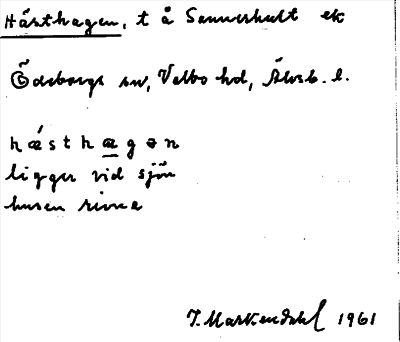 Hästhagen, t å Sannerhult ek
Ödeborgs sn, Valbo hd, Älvsb. l.
hæsthægən
ligger vid sjön
husen rivna
J. Markendahl 1961